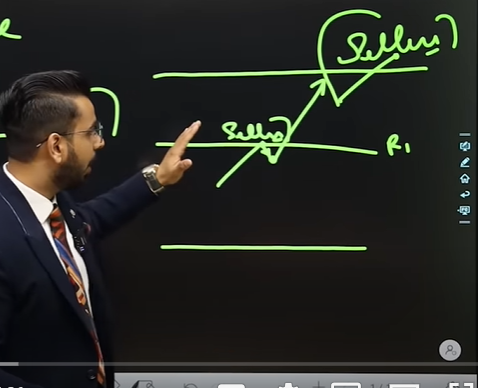 Sellers
Sellers
R1